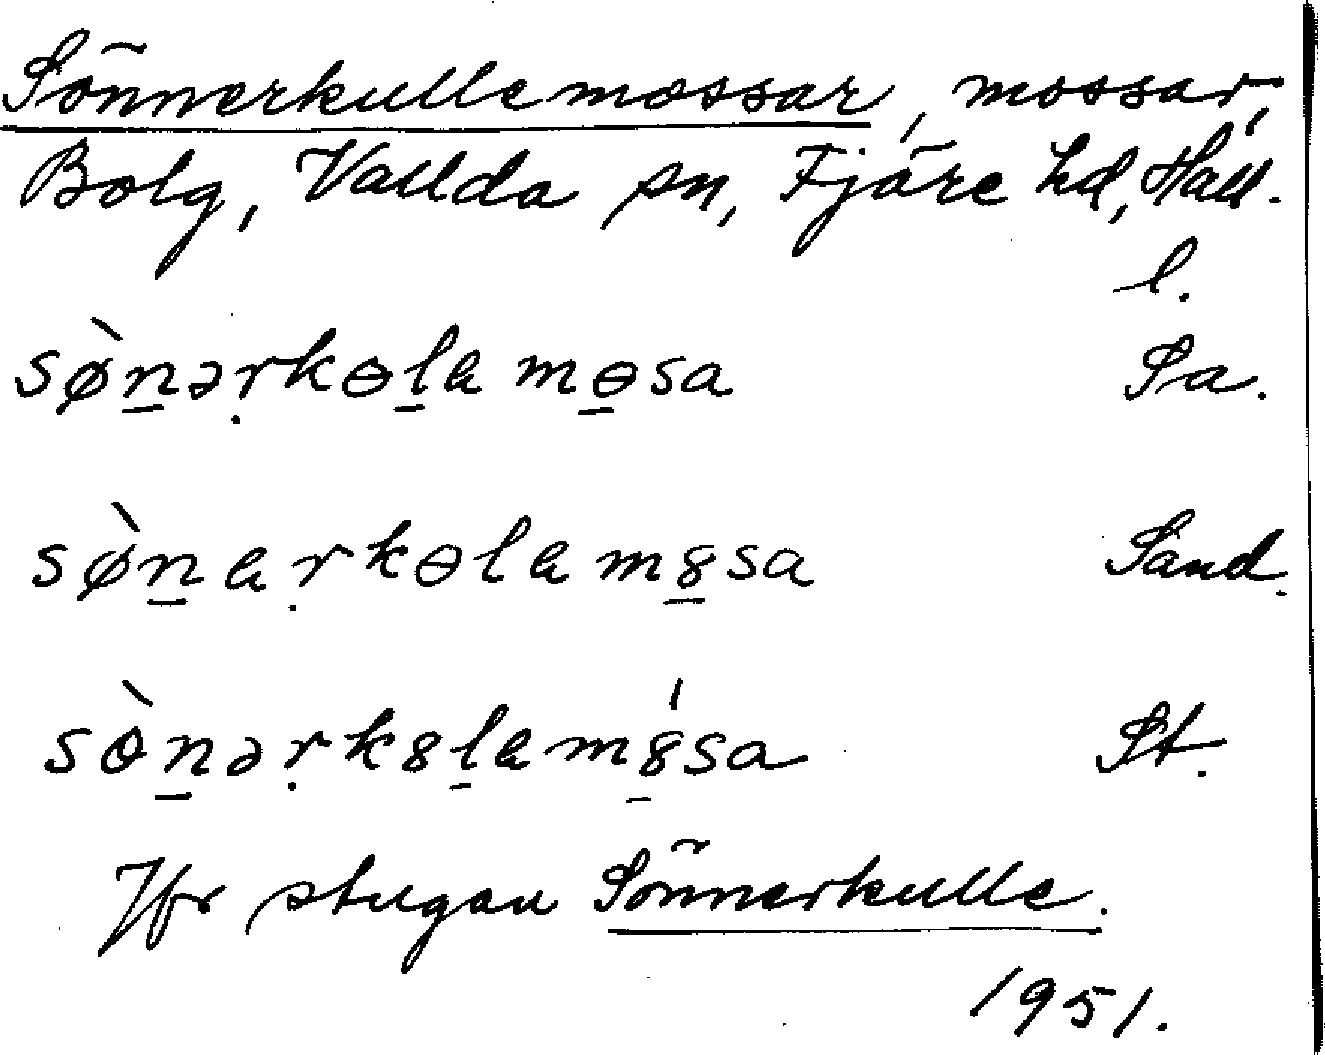 Sönnerkullemossar, mossar,
Bolg, Vallda sn, Fjäre hd, Hall.
l.
sø̀n̠əṛkɵl̠a mɵ̠sa Sa.
sø̀n̠aṛkɵlam8̠sa Sand.
sò̀n̠əṛk8l̠am8̠́sa St.
Jfr stugan Sönnerkulle.
1951.